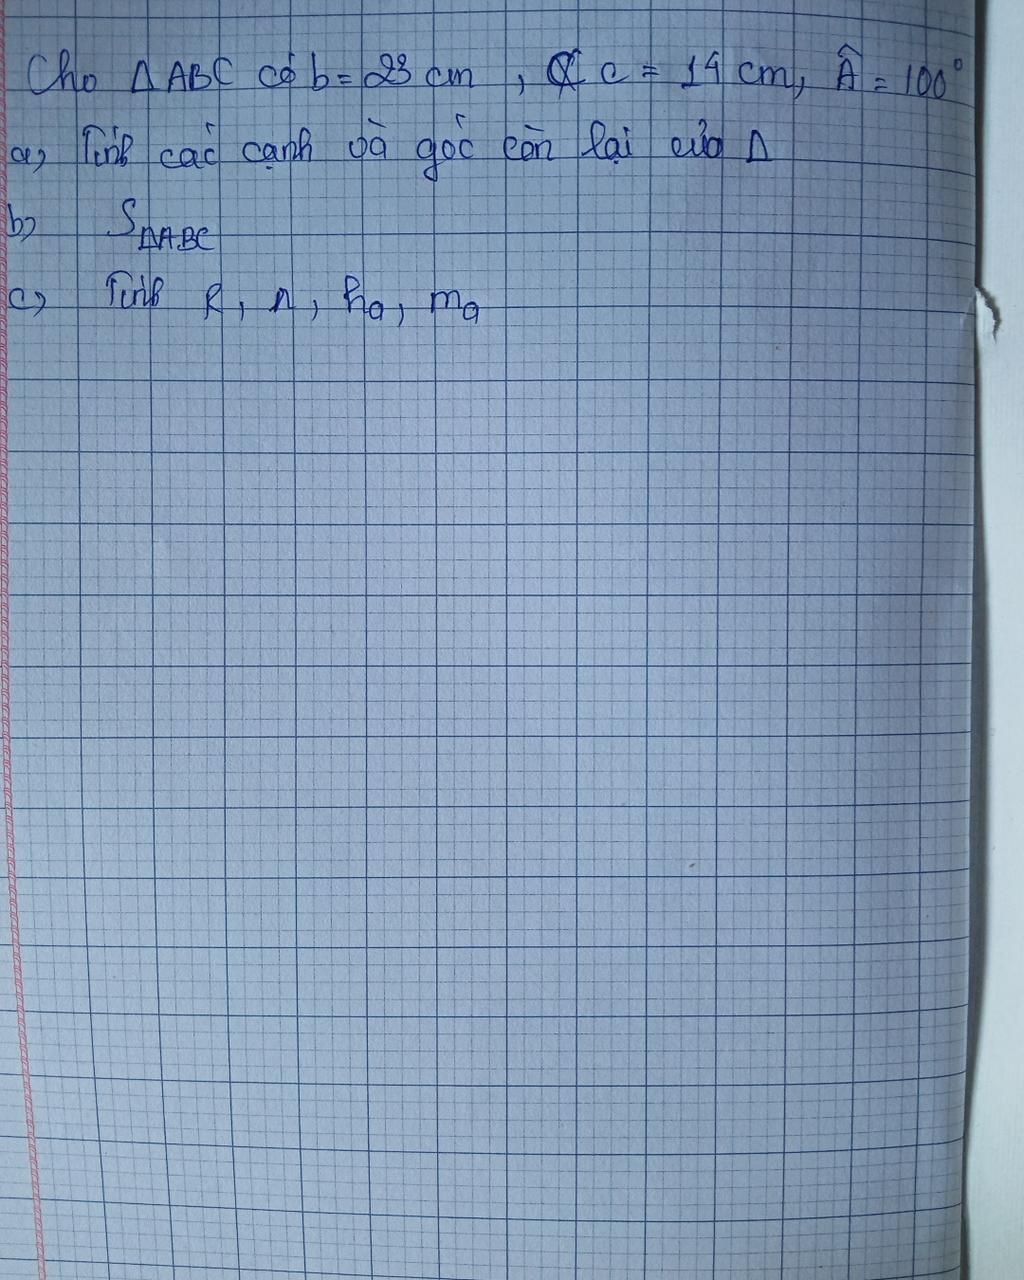 Cho ΔABC có b = 23 cm, c = 14 cm, Â = 100°
a, Tính các cạnh và góc còn lại của Δ
b) SΔABC
c, Tính R, r, ha, ma